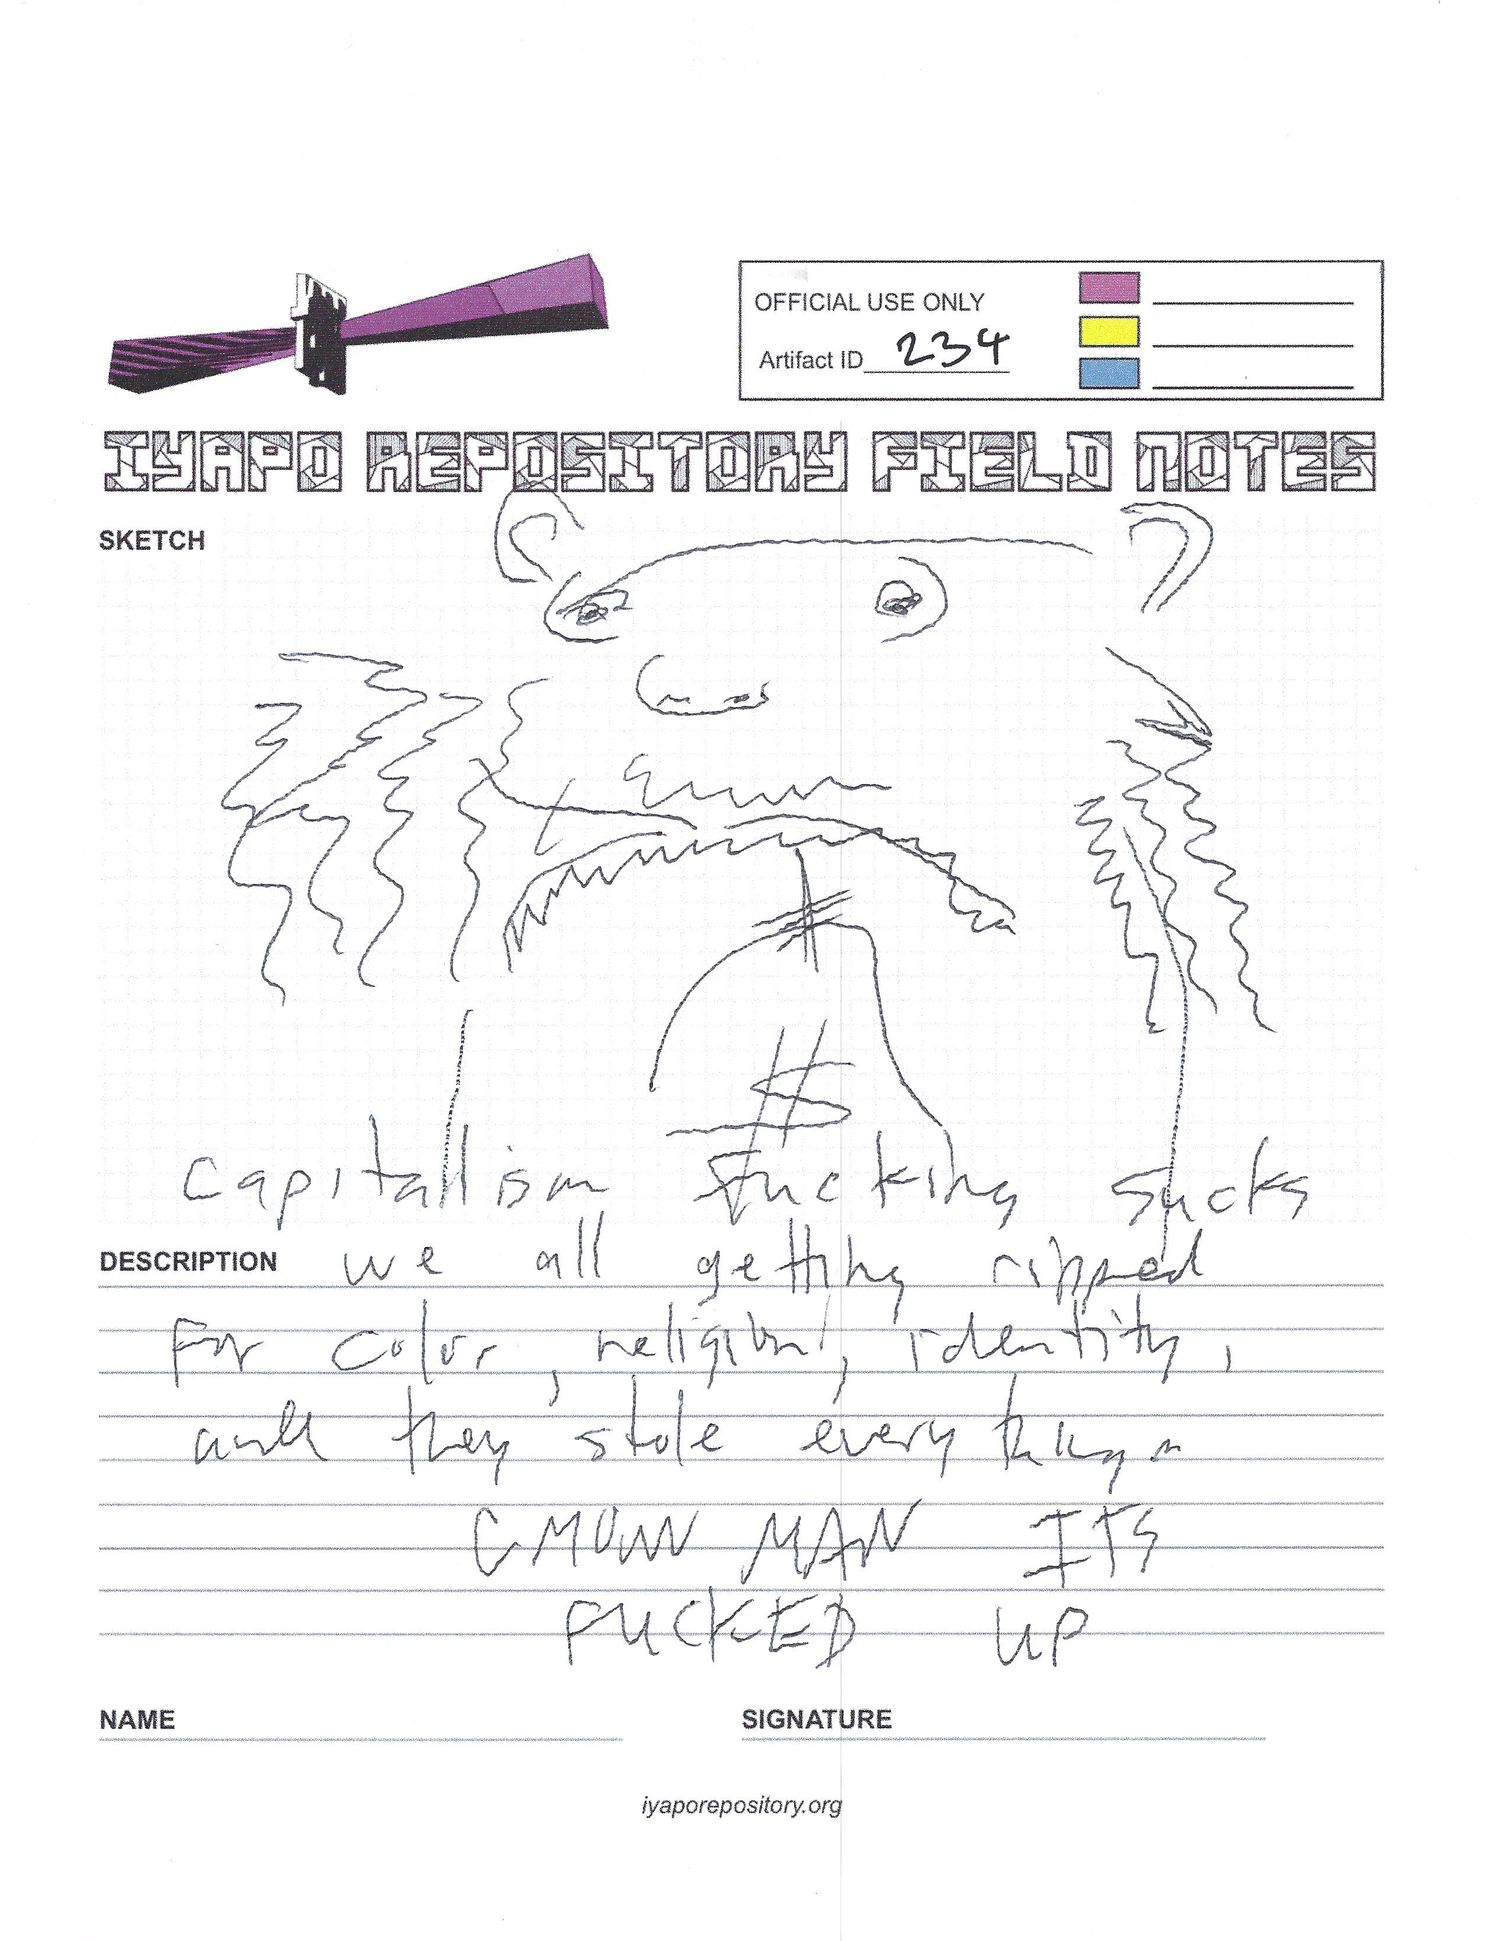 OFFICIAL USE ONLY
Artifact ID 234
IYAPO REPOSITORY FIELD NOTES
SKETCH
$
Capitalism Fucking sucks
DESCRIPTION we all getting ripped
For color, religion, identity,
and they stole everything
CMONN MAN ITS
FUCKED UP
NAME
SIGNATURE
iyaporepository.org